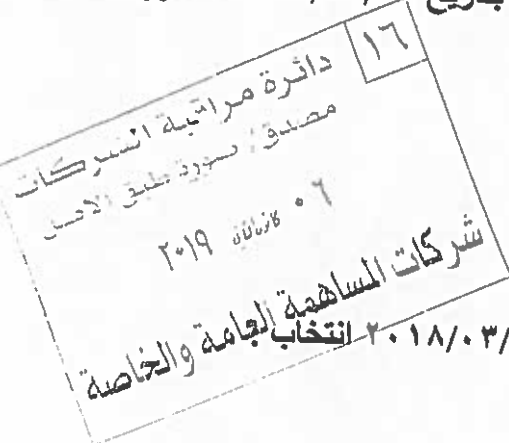 بتاريخ
١٦
دائرة مراقبة الشركات
مصدق / صورة طبق الأصل
٠٦ كانون ٢٠١٩
شركات المساهمة العامة والخاصة
٢٠١٨/٠٣/ انتخاب